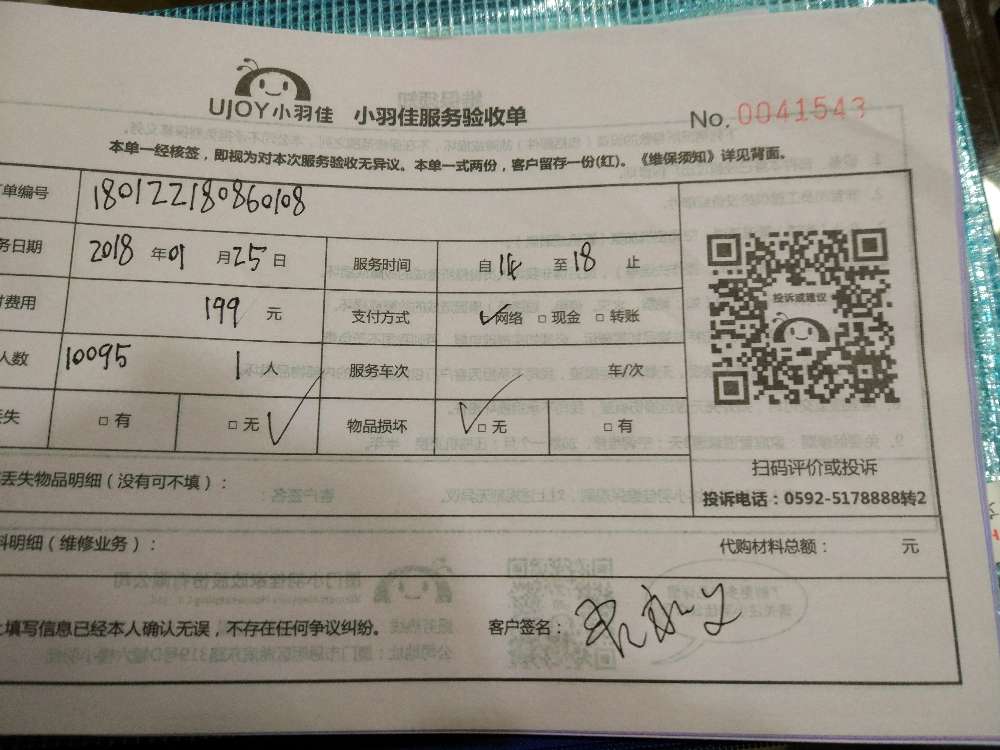 UJOY小羽佳 小羽佳服务验收单 No. 0041543
本单一经核签，即视为对本次服务验收无异议。本单一式两份，客户留存一份(红)。《维保须知》详见背面。
单编号 180122180860108
务日期 2018 年 01 月 25 日 服务时间 自 14 至 18 止
费用 199 元 支付方式 ✓网络 □ 现金 □ 转账
人数 10095 1 人 服务车次 车/次
失 □ 有 □ 无 ✓ 物品损坏 ✓□ 无 □ 有
投诉或建议
扫码评价或投诉
投诉电话：0592-5178888转2
丢失物品明细（没有可不填）：
料明细（维修业务）： 代购材料总额： 元
上填写信息已经本人确认无误，不存在任何争议纠纷。 客户签名：